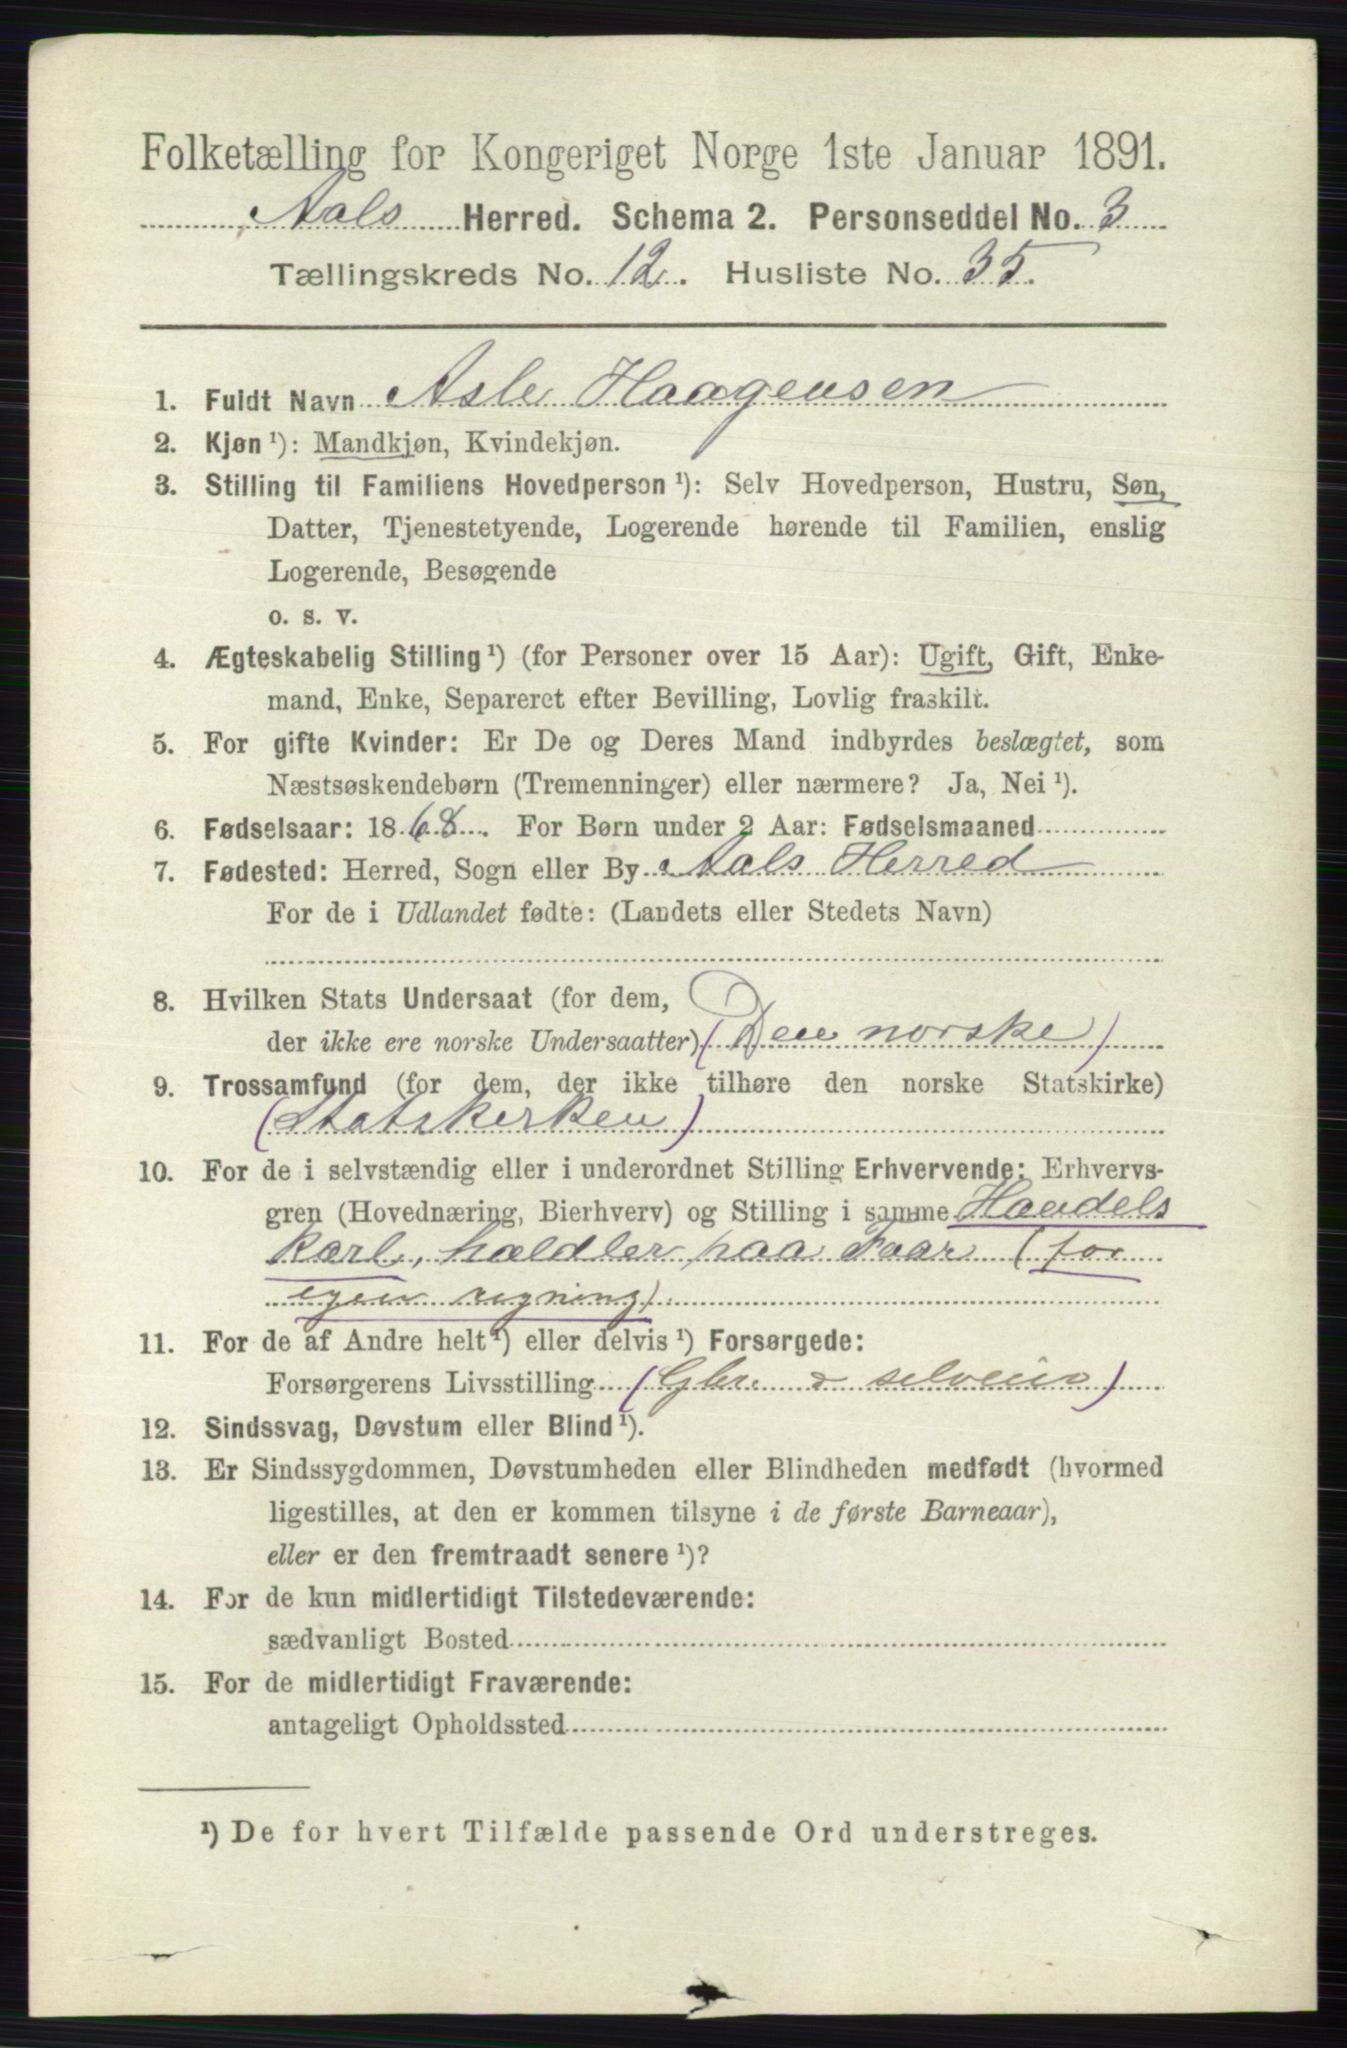 Folketælling for Kongeriget Norge 1ste Januar 1891.
Aals Herred. Schema 2. Personseddel No. 3
Tællingskreds No. 12. Husliste No. 35.
1. Fuldt Navn Asle Haagensen
2. Kjøn ¹): Mandkjøn, Kvindekjøn.
3. Stilling til Familiens Hovedperson ¹): Selv Hovedperson, Hustru, Søn,
Datter, Tjenestetyende, Logerende hørende til Familien, enslig
Logerende, Besøgende
o. s. v.
4. Ægteskabelig Stilling ¹) (for Personer over 15 Aar): Ugift, Gift, Enke-
mand, Enke, Separeret efter Bevilling, Lovlig fraskilt.
5. For gifte Kvinder: Er De og Deres Mand indbyrdes beslægtet, som
Næstsøskendebørn (Tremenninger) eller nærmere? Ja, Nei ¹).
6. Fødselsaar: 1868. For Børn under 2 Aar: Fødselsmaaned
7. Fødested: Herred, Sogn eller By Aals Herred
For de i Udlandet fødte: (Landets eller Stedets Navn)
8. Hvilken Stats Undersaat (for dem,
der ikke ere norske Undersaatter) (Den norske)
9. Trossamfund (for dem, der ikke tilhøre den norske Statskirke)
(Statskerken)
10. For de i selvstændig eller i underordnet Stilling Erhvervende: Erhvervs-
gren (Hovednæring, Bierhverv) og Stilling i samme Handels
karl, hældler paa Faar (for
egen regning)
11. For de af Andre helt ¹) eller delvis ¹) Forsørgede:
Forsørgerens Livsstilling (Gbr. & selveier)
12. Sindssvag, Døvstum eller Blind ¹).
13. Er Sindssygdommen, Døvstumheden eller Blindheden medfødt (hvormed
ligestilles, at den er kommen tilsyne i de første Barneaar),
eller er den fremtraadt senere ¹)?
14. For de kun midlertidigt Tilstedeværende:
sædvanligt Bosted
15. For de midlertidigt Fraværende:
antageligt Opholdssted
¹) De for hvert Tilfælde passende Ord understreges.